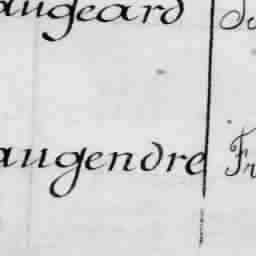 augeard
augendre Fr